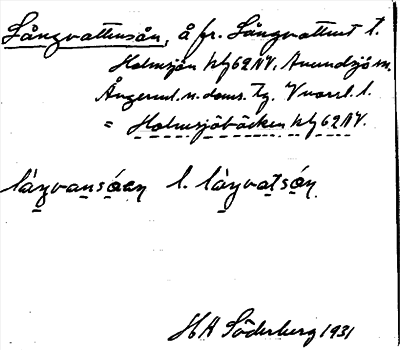 Långvattensån, å fr. Långvattnet t.
Holmsjön kbl 62 NV. Anundsjö sn.
Ångerml. n. doms. tg. Vnorrl. l.
= Holmsjöbäcken kbl 62 NV.
làŋvansóan l. làŋvatsón
HA Söderberg 1931